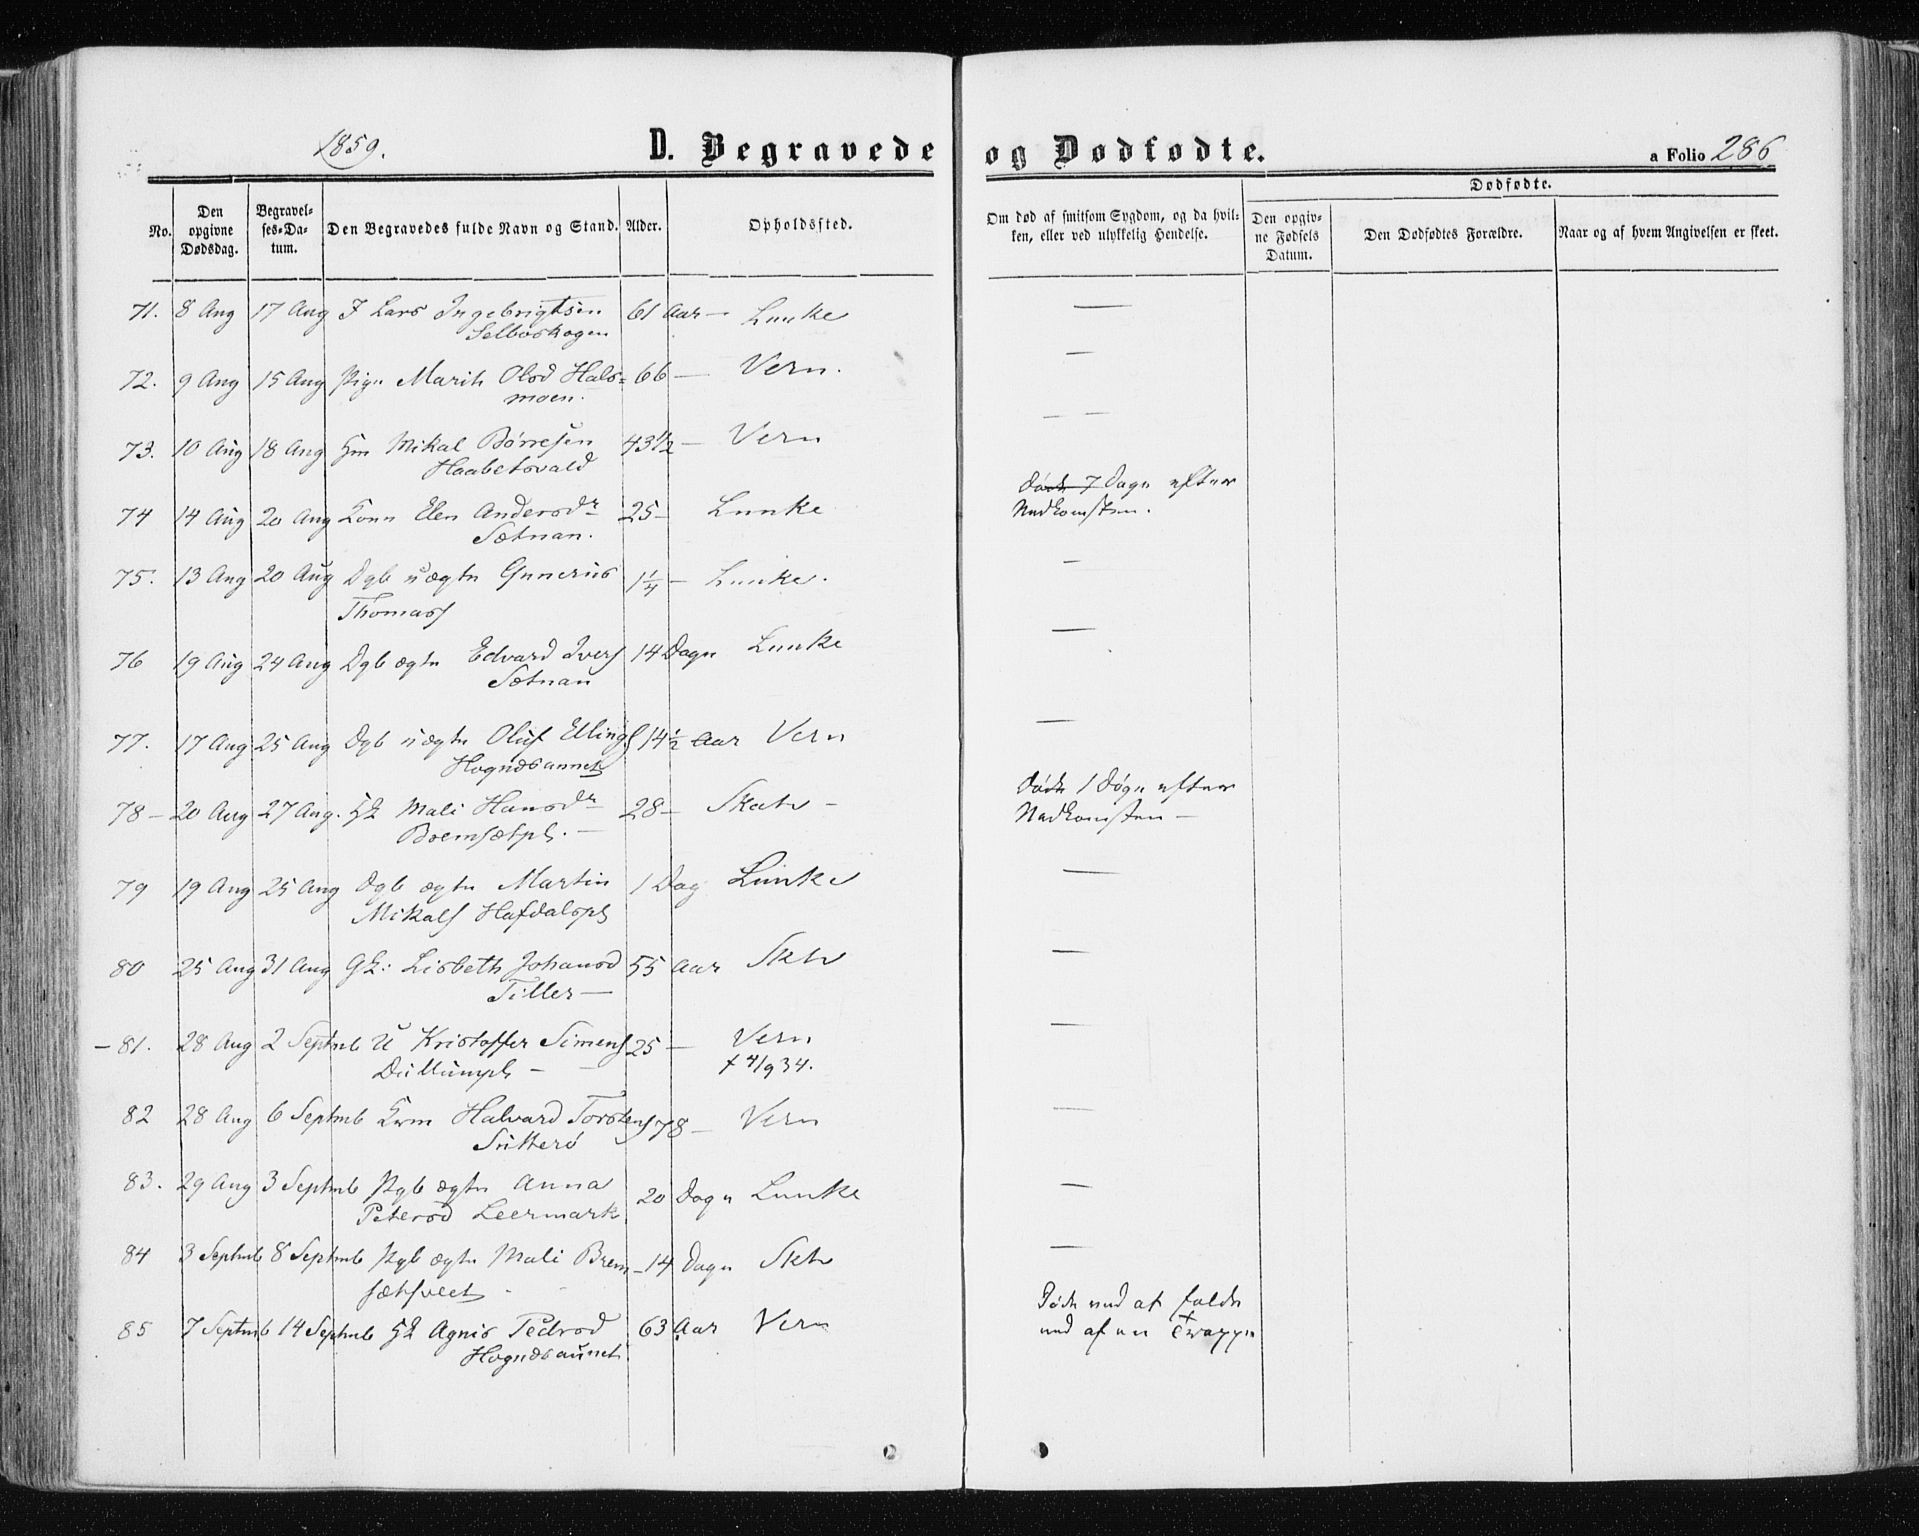 1859.
D. Begravede og Dødfødte.
a Folio 286
Dødfødte.
No.
Den opgivne Dødsdag.
Begravelses-Datum.
Den Begravedes fulde Navn og Stand.
Alder.
Opholdssted.
Om død af smitsom Sygdom, og da hvilken, eller ved ulykkelig Hendelse.
Den opgivne Fødsels Datum.
Den Dødfødtes Forældre.
Naar og af hvem Angivelsen er skeet.
71. 8 Aug 17 Aug I Lars Ingebrigtsen 61 Aar — Lunke —
Selboskogen
72. 9 Aug 15 Aug Pige Marit Olsd Hals= 66 — Vern. —
moen.
73. 10 Aug 18 Aug Gm Mikal Børresen 43 1/2 — Vern —
Haabetsvald
74 14 Aug 20 Aug Kone Elen Andersdr 25 — Lunke døde 7 Dage efter
Sætnan. Nedkomsten.
75. 13 Aug 20 Aug Dgb uægte Gunerius 1 1/4 — Lunke. —
Thomass
76 19 Aug 24 Aug Dgb ægte Edvard Ivers 14 Dage Lunke —
Sætnan
77. 17 Aug 25 Aug Dgb uægte Oluf Ellings 14 1/2 Aar Vern —
Hognæsaunet
78 — 20 Aug 27 Aug. Mali Hansdr 28 — Skate —
Bremsætpl. — døde 1 Døgn efter
Nedkomsten —
79 19 Aug 25 Aug Dgb ægte Martin 1 Dag Lunke —
Mikals Hafdalspl
80 25 Aug 31 Aug Lisbeth Johansd 55 Aar Skte —
Tiller —
— 81. 28 Aug 2 Septmb U Kristoffer Simens 25 — Vern —
Dullumpl — † 4/9 34.
82 28 Aug 6 Septmb Halvard Torstens 78 — Vern —
Sutterø
83. 29 Aug 3 Septmb Pgb ægte Anna 20 Dage Lunke —
Petersd Leermark
84 3 Septmb 8 Septmb Pgb ægte Mali Brem 14 Dage Skte —
sætsveet
85 7 Septmb 14 Septmb Agnis Pedrsd 63 Aar Vern Døde ved at falde
Hognæsaunet. ned af en Trappe